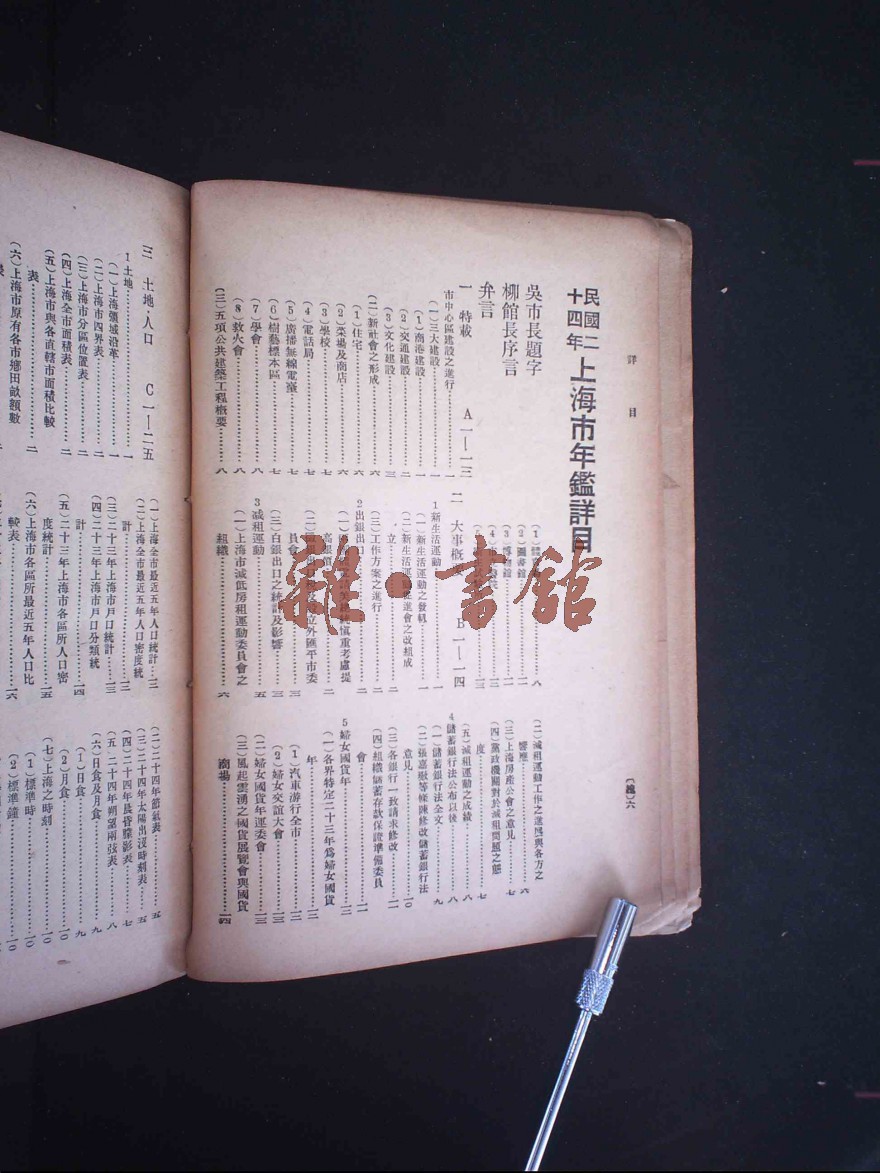 詳目
民國二十四年 上海市年鑑詳目
吳市長題字
柳館長序言
弁言
一 特載 A一—一三
市中心區建設之進行……一
(一)三大建設……一
(1)南港建設……一
(2)交通建設……二
(3)文化建設……三
(二)新社會之形成……六
(1)住宅……六
(2)菜場及商店……六
(3)學校……七
(4)電話局……七
(5)廣播無線電臺……七
(6)樹藝標本區……七
(7)學會……八
(8)救火會……八
(三)五項公共建築工程概要……八
(2)圖書館
(3)博物館
二 大事概 B一—一四
1新生活運動……一
(一)新生活運動之發軔……一
(二)新生活運動促進會之改組成立……二
(三)工作方案之進行……二
2出銀出口
慎重考慮提高銀價……二
立外匯平市委員會……三
(三)白銀出口之統計及影響……三
3減租運動……五
(一)上海市減低房租運動委員會之組織……六
(二)減租運動工作之進展與各方之響應……六
(三)上海房產公會之意見……七
(四)黨政機關對於減租問題之態度……七
(五)減租運動之成績……八
4儲蓄銀行法公布以後……八
(一)儲蓄銀行法全文……九
(二)張嘉璈等條陳修改儲蓄銀行法意見……一〇
(三)各銀行一致請求修改……一一
(四)組織儲蓄存款保證準備委員會……一二
5婦女國貨年……一三
(一)各界特定二十三年為婦女國貨年……一三
(1)汽車游行全市……一三
(2)婦女交誼大會……一三
(二)婦女國貨年運委會……一三
(三)風起雲湧之國貨展覽會與國貨商場……一四
雜·書館
三 土地·人口 C一—二五
1土地……一
(一)上海疆域沿革……一
(二)上海市四界表……二
(三)上海市分區位置表……二
(四)上海全市面積表……二
(五)上海市與各直轄市面積比較表……二
(六)上海市原有各市鄉田畝額數
(一)上海全市最近五年人口統計……一三
(二)上海全市最近五年人口密度統計……一三
(三)二十三年上海市戶口統計……一三
(四)二十三年上海市戶口分類統計……一四
(五)二十三年上海市各區所人口密度統計……一五
(六)上海市各區所最近五年人口比較表……一六
(二)二十四年節氣表……五
(三)二十四年太陽出沒時刻表……五
(四)二十四年晨昏矇影表……七
(五)二十四年朔望兩弦表……八
(六)日食及月食……九
(1)日食……九
(2)月食……一〇
(七)上海之時刻……一〇
(1)標準時……一〇
(2)標準鐘……一〇